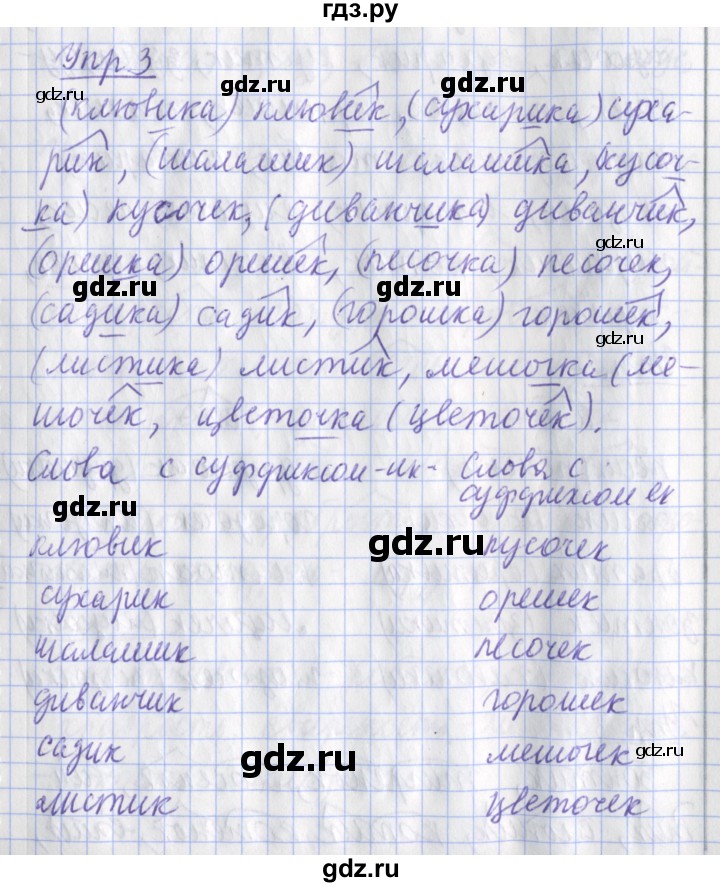 гдз.ру
Упр 3
gdz.ru
(клювика) клювик, (сухарика) суха-
рик, (шалашик) шалашика, (кусоч-
ка) кусочек, (диванчика) диванчик,
gdz.ru
(орешка) орешек, (песочка) песочек,
gdz.ru
gdz.ru
(садика) садик, (горошка) горошек,
gdz.ru
(листика) листик, мешочка (ме-
шочек, цветочка (цветочек).
Слова с суффиксом -ик- Слова с
суффиксом ек
gdz.ru
клювик кусочек
gdz.ru
сухарик орешек
шалашик песочек
диванчик горошек
садик мешочек
gdz.ru
gdz.ru
листик цветочек
gdz.ru